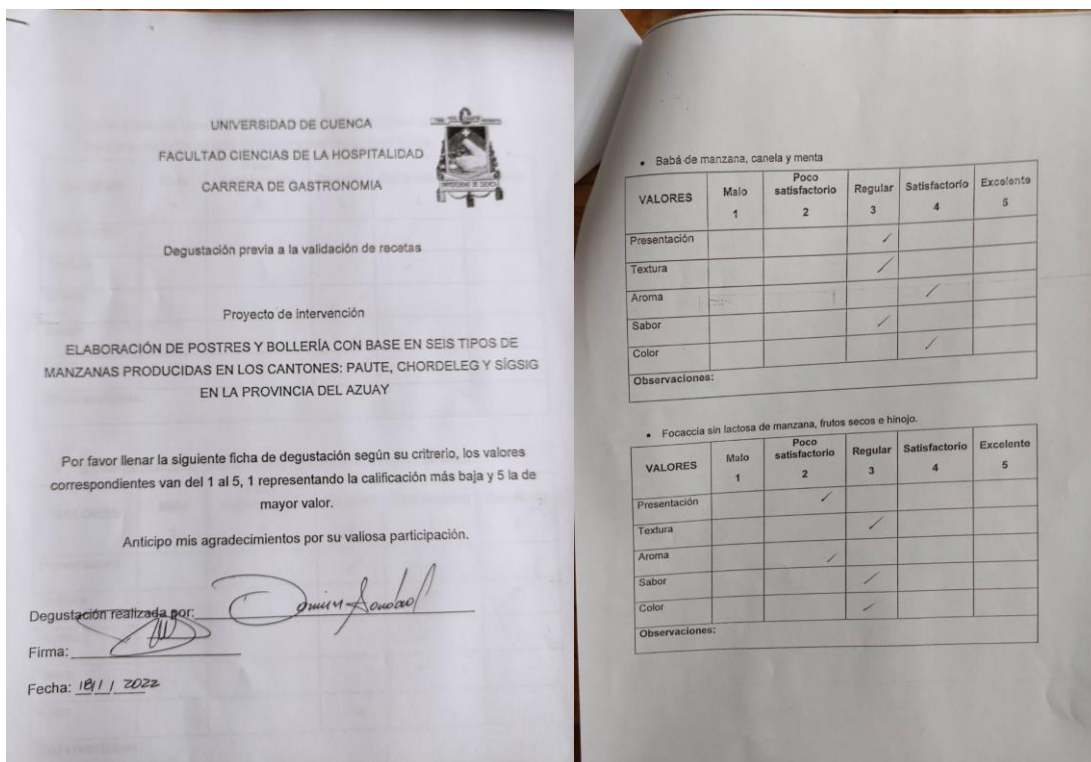 UNIVERSIDAD DE CUENCA
FACULTAD CIENCIAS DE LA HOSPITALIDAD
CARRERA DE GASTRONOMIA
UNIVERSIDAD DE CUENCA
Degustación previa a la validación de recetas
Proyecto de intervención
ELABORACIÓN DE POSTRES Y BOLLERÍA CON BASE EN SEIS TIPOS DE
MANZANAS PRODUCIDAS EN LOS CANTONES: PAUTE, CHORDELEG Y SÍGSIG
EN LA PROVINCIA DEL AZUAY
Por favor llenar la siguiente ficha de degustación según su critrerio, los valores
correspondientes van del 1 al 5, 1 representando la calificación más baja y 5 la de
mayor valor.
Anticipo mis agradecimientos por su valiosa participación.
Degustación realizada por:
Firma:
Fecha: 18/1 / 2022
• Babá de manzana, canela y menta
VALORES Malo 1 Poco satisfactorio 2 Regular 3 Satisfactorio 4 Excelente 5
Presentación
Textura
Aroma
Sabor
Color
Observaciones:
• Focaccia sin lactosa de manzana, frutos secos e hinojo.
VALORES Malo 1 Poco satisfactorio 2 Regular 3 Satisfactorio 4 Excelente 5
Presentación
Textura
Aroma
Sabor
Color
Observaciones: